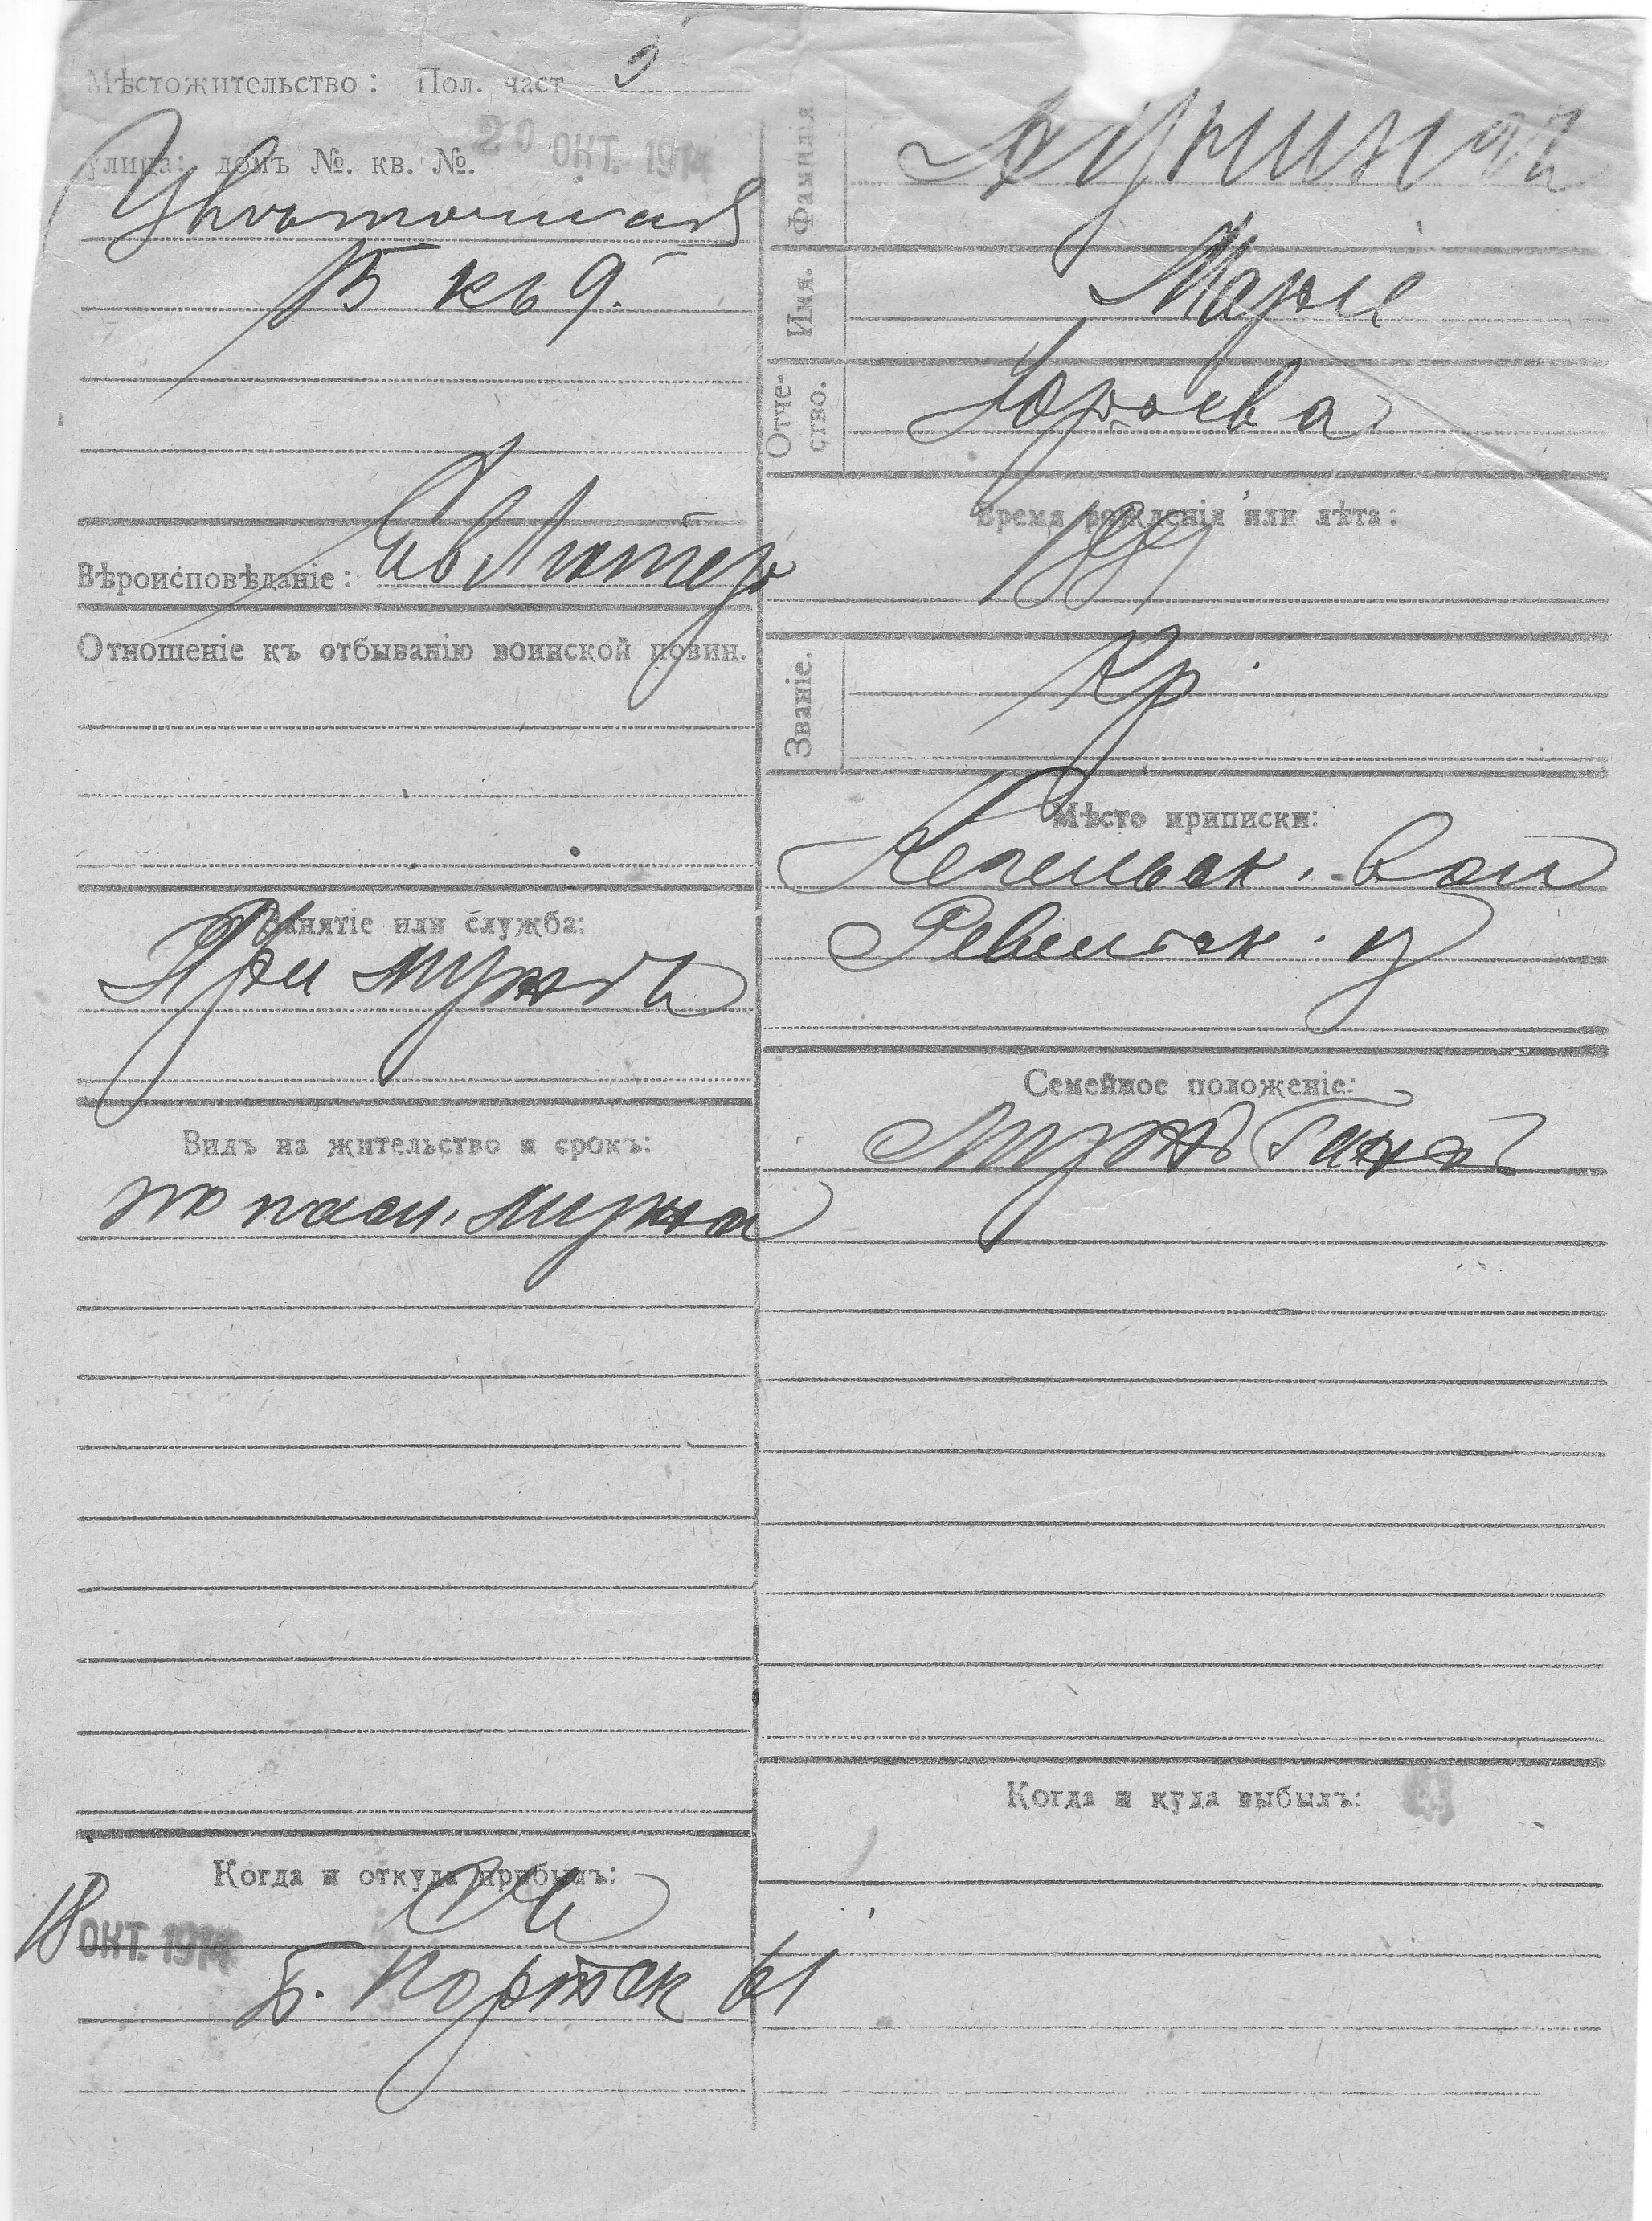 Мѣстожительство: Пол. част 3
улица: домъ №. кв. №.
20 ОКТ. 1914
Цвѣточная
15 кв 9.
Вѣроисповѣданіе: Ев. Лютер
Отношеніе къ отбыванію воинской повин.
Занятіе или служба:
При мужѣ
Видъ на жительство и срокъ:
по пасп. мужа
Когда и откуда прибылъ:
18 ОКТ. 1914
Б. Юрьевск 61
Фамилія
Имя. Марі
Отче-
ство. Юрьева
Время рожденія или лѣта:
1881
Званіе. Кр
Мѣсто приписки:
Кегельск. вол
Ревельск. у
Семейное положеніе:
Мужъ Гансъ
Когда и куда выбылъ: